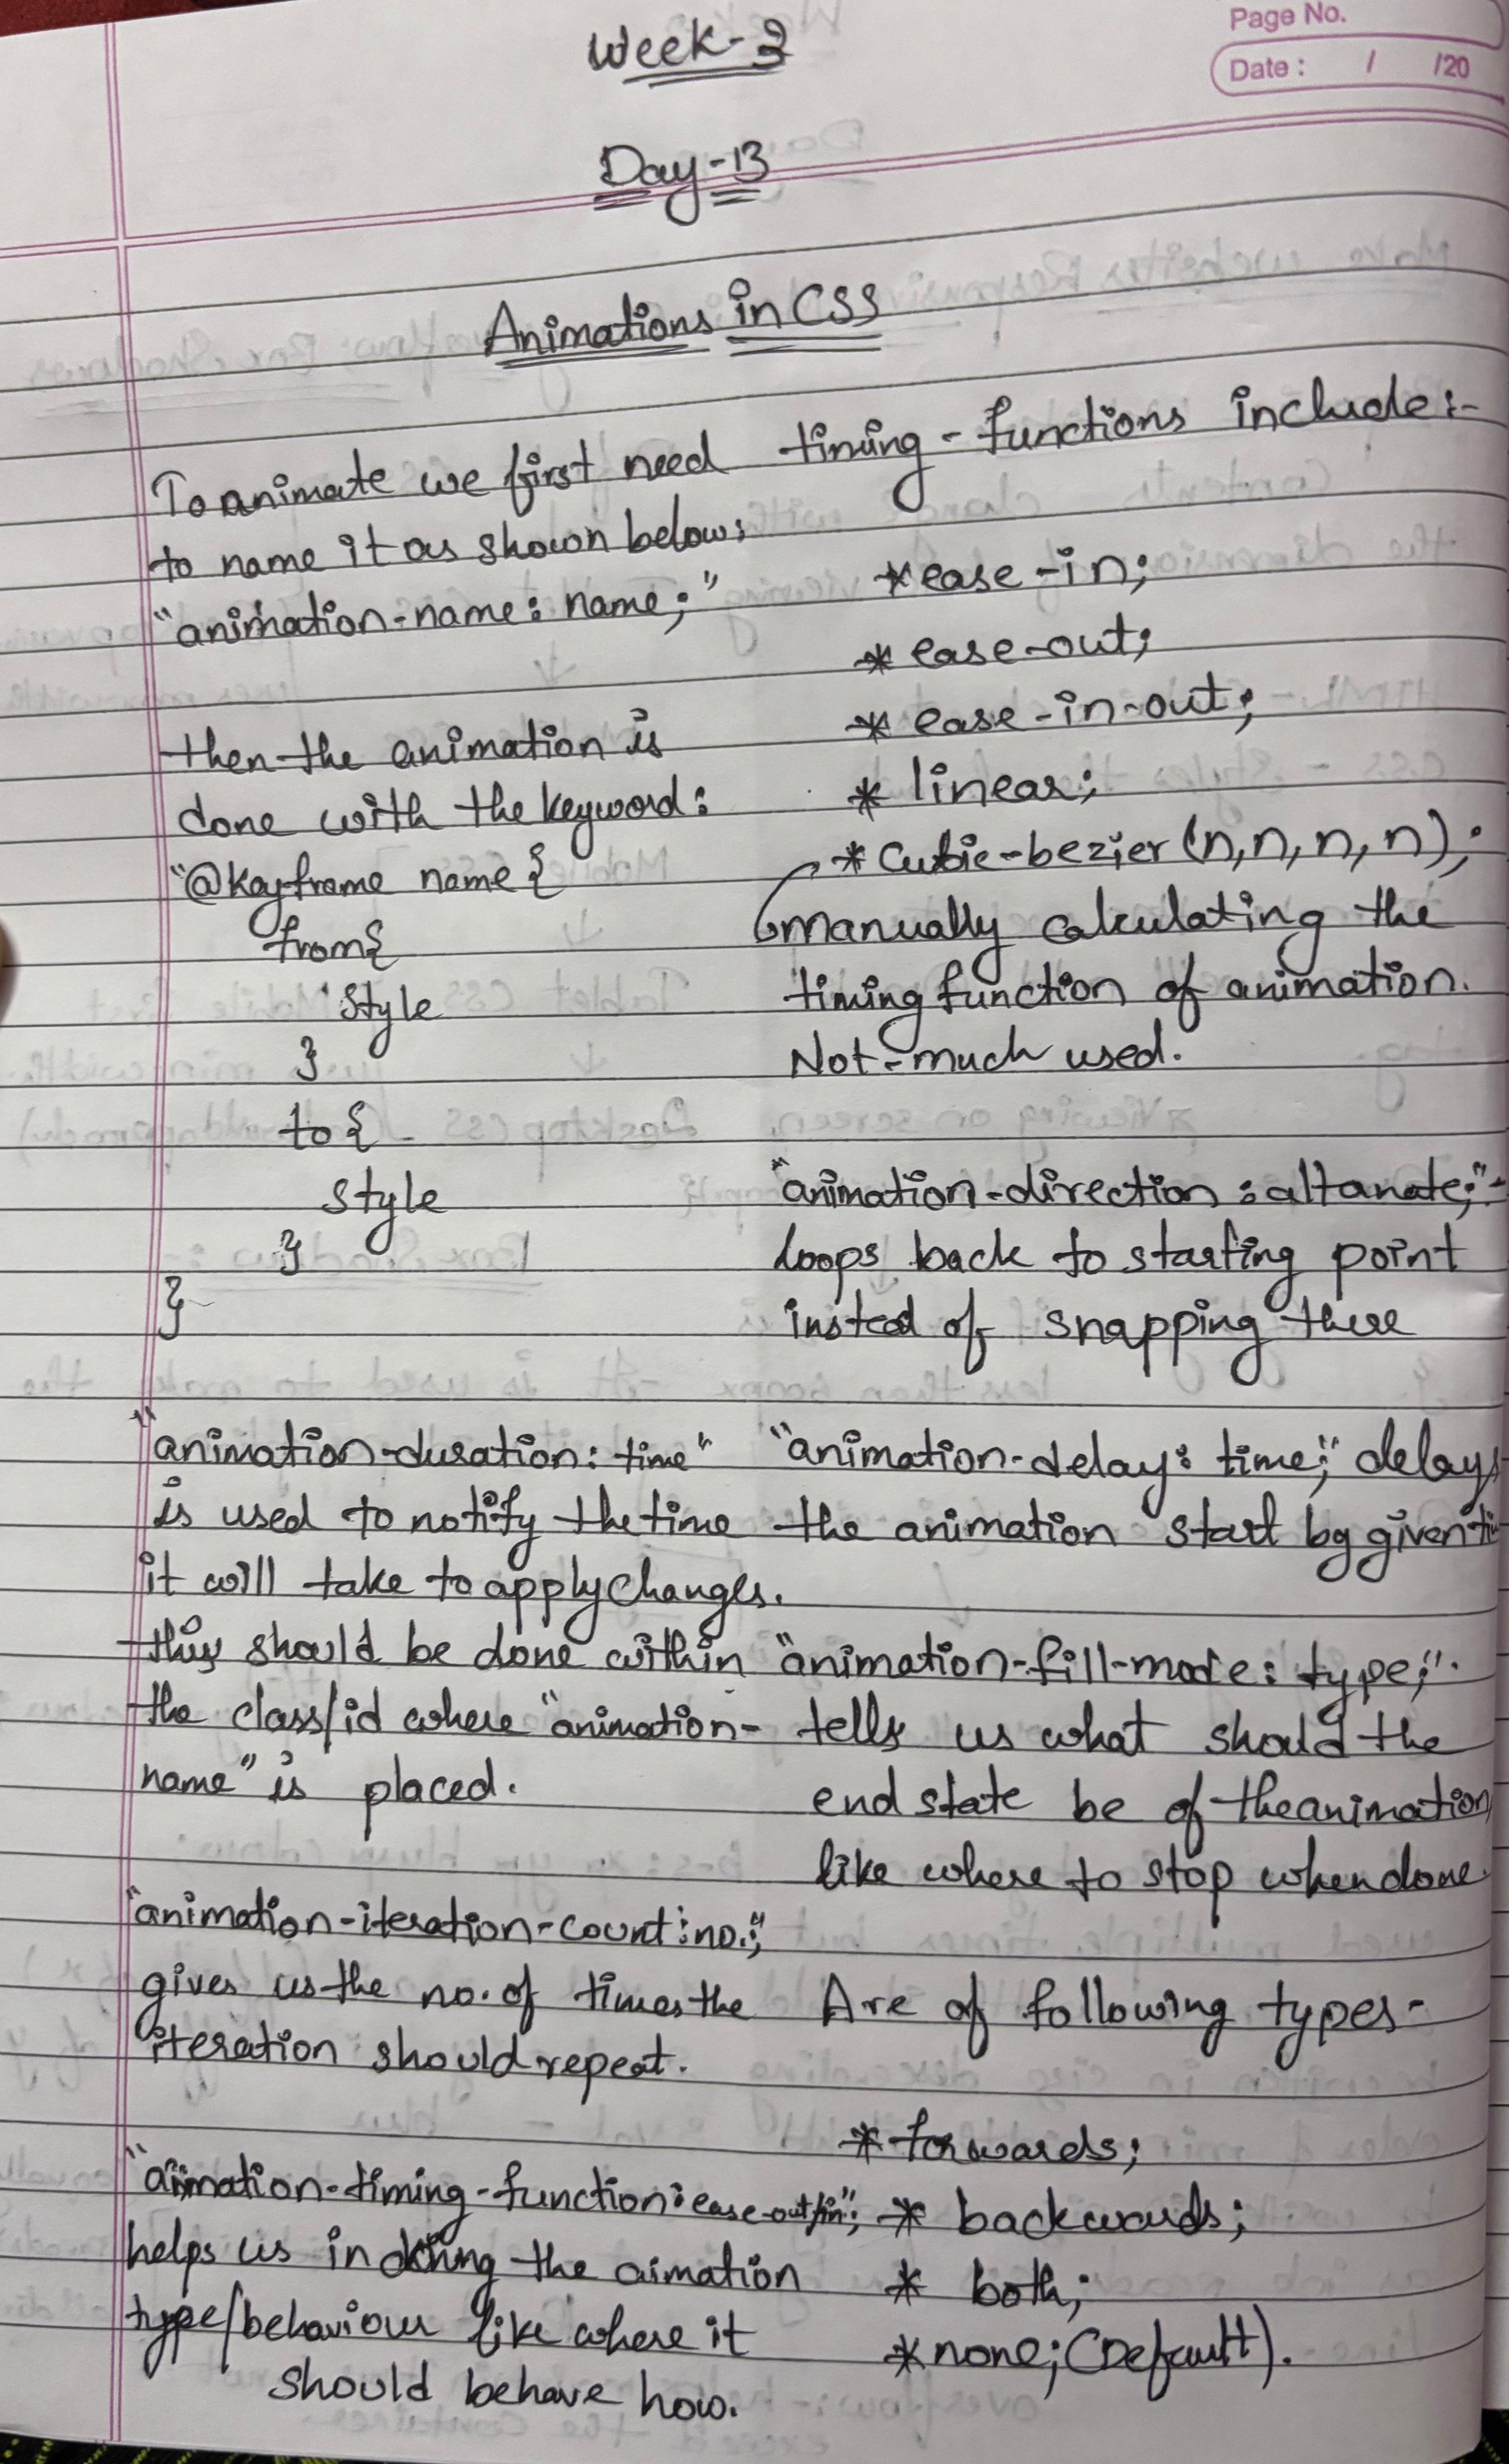 Page No.
Date : / /20
Week-3
Day-13
Animations in CSS
To animate we first need
to name it as shown below:
"animation-name: name;"
then the animation is
done with the keyword:
"@keyframe name {
from{
style
}
to {
style
}
}
"animation-duration: time"
is used to notify the time
it will take to apply changes.
this should be done within
the class/id where "animation-
name" is placed.
"animation-iteration-count: no.;"
gives us the no. of times the
iteration should repeat.
"animation-timing-function: ease-out/in";
helps us in doing the aimation
type/behaviour like where it
should behave how.
timing-functions include:-
* ease-in;
* ease-out;
* ease-in-out;
* linear;
* Cubic-bezier (n,n,n,n);
manually calculating the
timing function of animation.
Not-much used.
"animation-direction: altanate;"-
loops back to starting point
instead of snapping there
"animation-delay: time;" delays
the animation start by given
"animation-fill-mode: type;"
tells us what should the
end state be of the animation
like where to stop when done.
Are of following types-
* forwards;
* backwards;
* both;
* none; (Default).